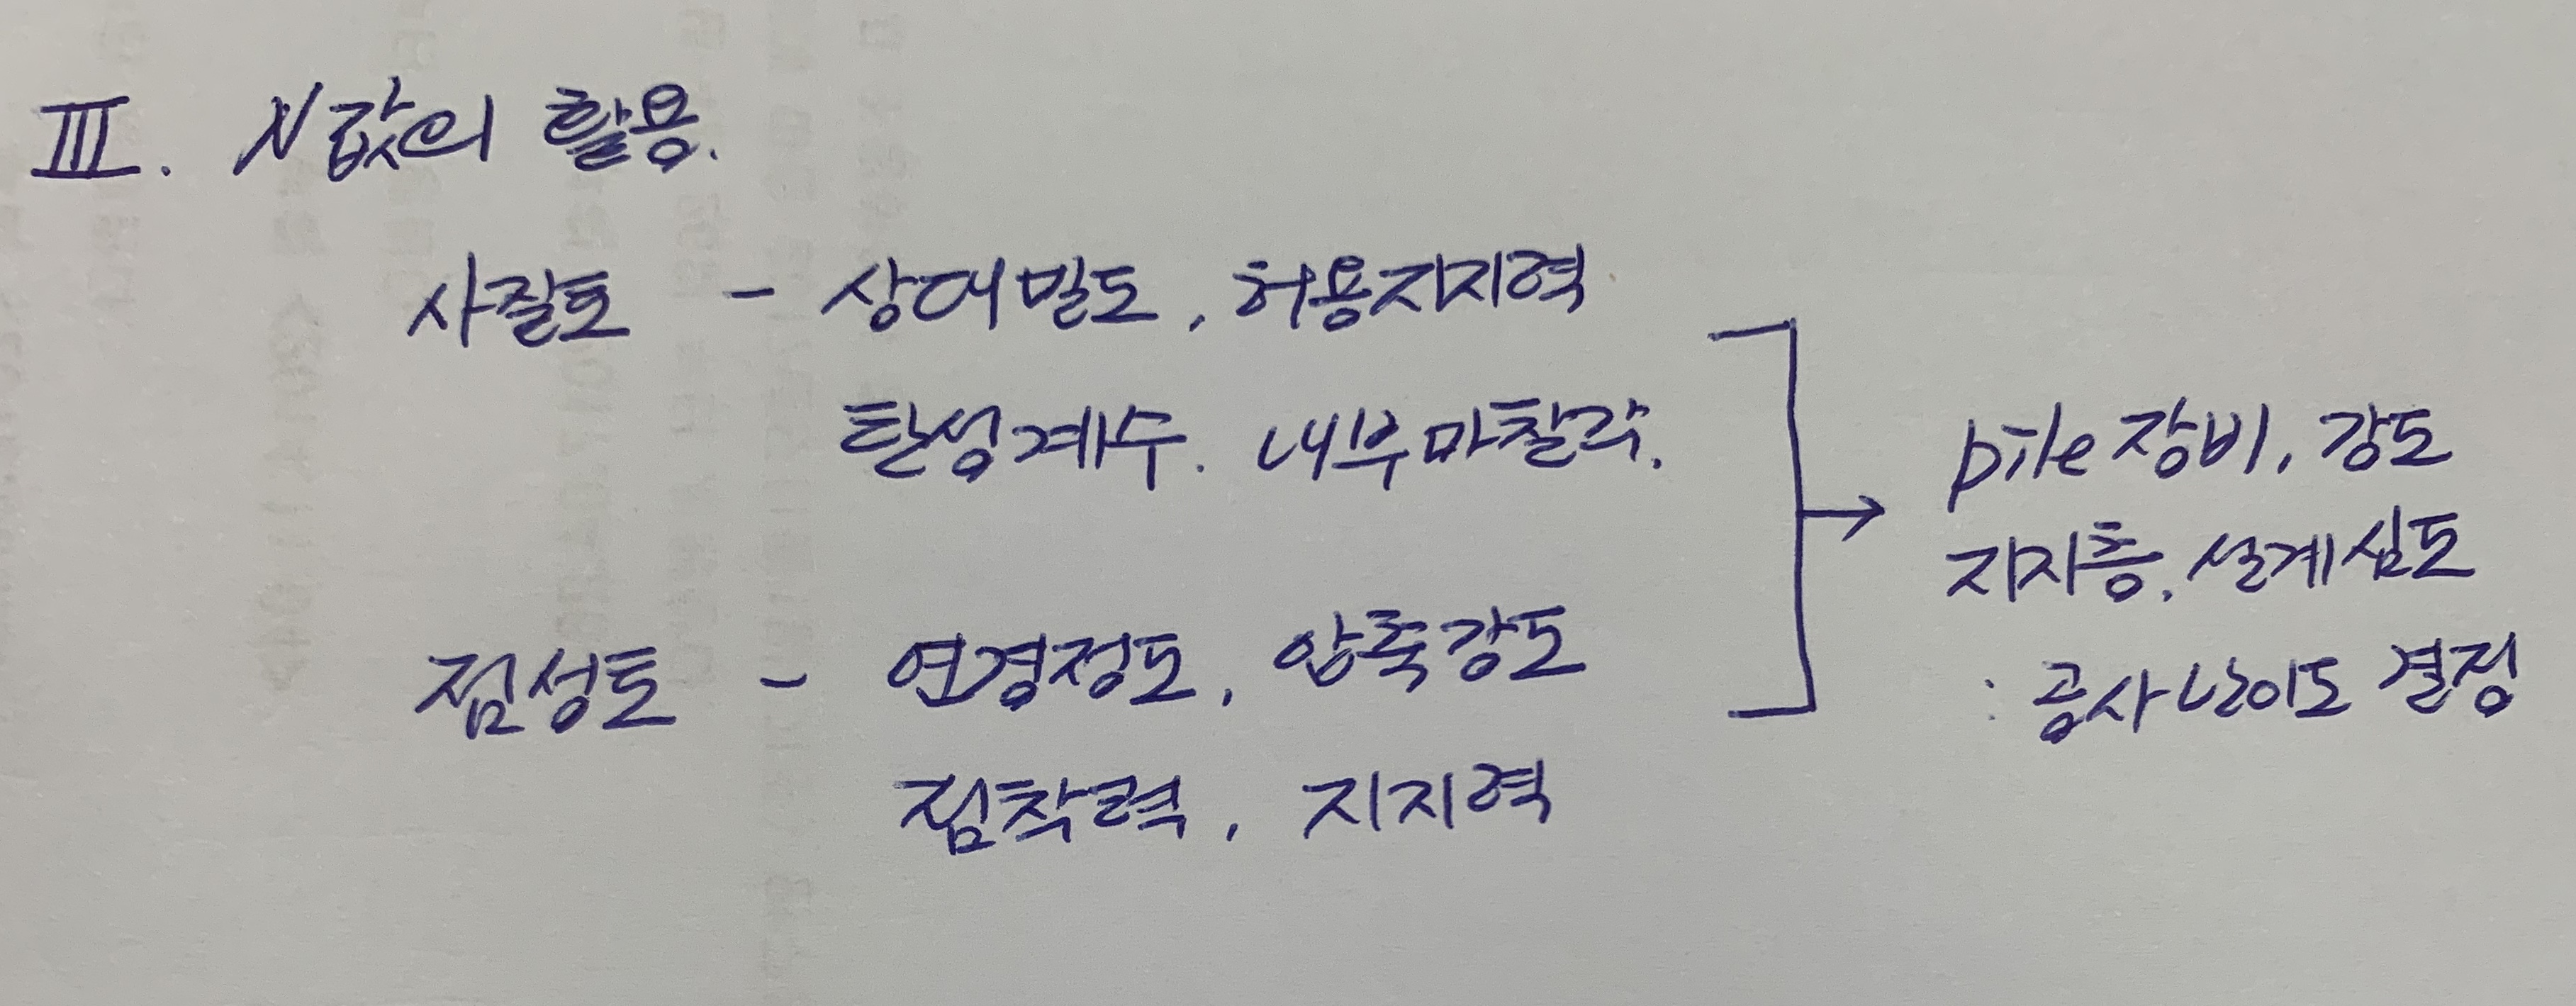 III. N값의 활용.
사질토 - 상대밀도, 허용지지력
탄성계수. 내부마찰각.
점성토 - 연경정도, 압축강도
점착력, 지지력
→ pile장비, 강도
지지층, 설계심도
: 공사난이도 결정